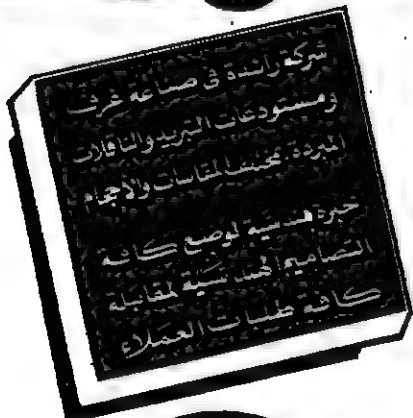 شركة رائدة في صناعة غرف
ومستودعات التبريد والناقلات
المبردة بمختلف المقاسات والأحجام
خبرة هندسية لوضع كافة
التصاميم الهندسية لمقابلة
كافة طلبات العملاء